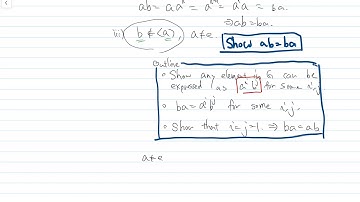 ab = aaⁿ = aⁿ⁺¹ = aⁿa = ba.
⇒ab = ba.
iii) b ∉ <a>, a ≠ e. Show ab = ba
Outline
• Show any element in G can be
expressed as aⁱbʲ for some i,j
• ba = aⁱbʲ for some i,j.
• Show that i=j=1. ⇒ ba = ab
a ≠ e